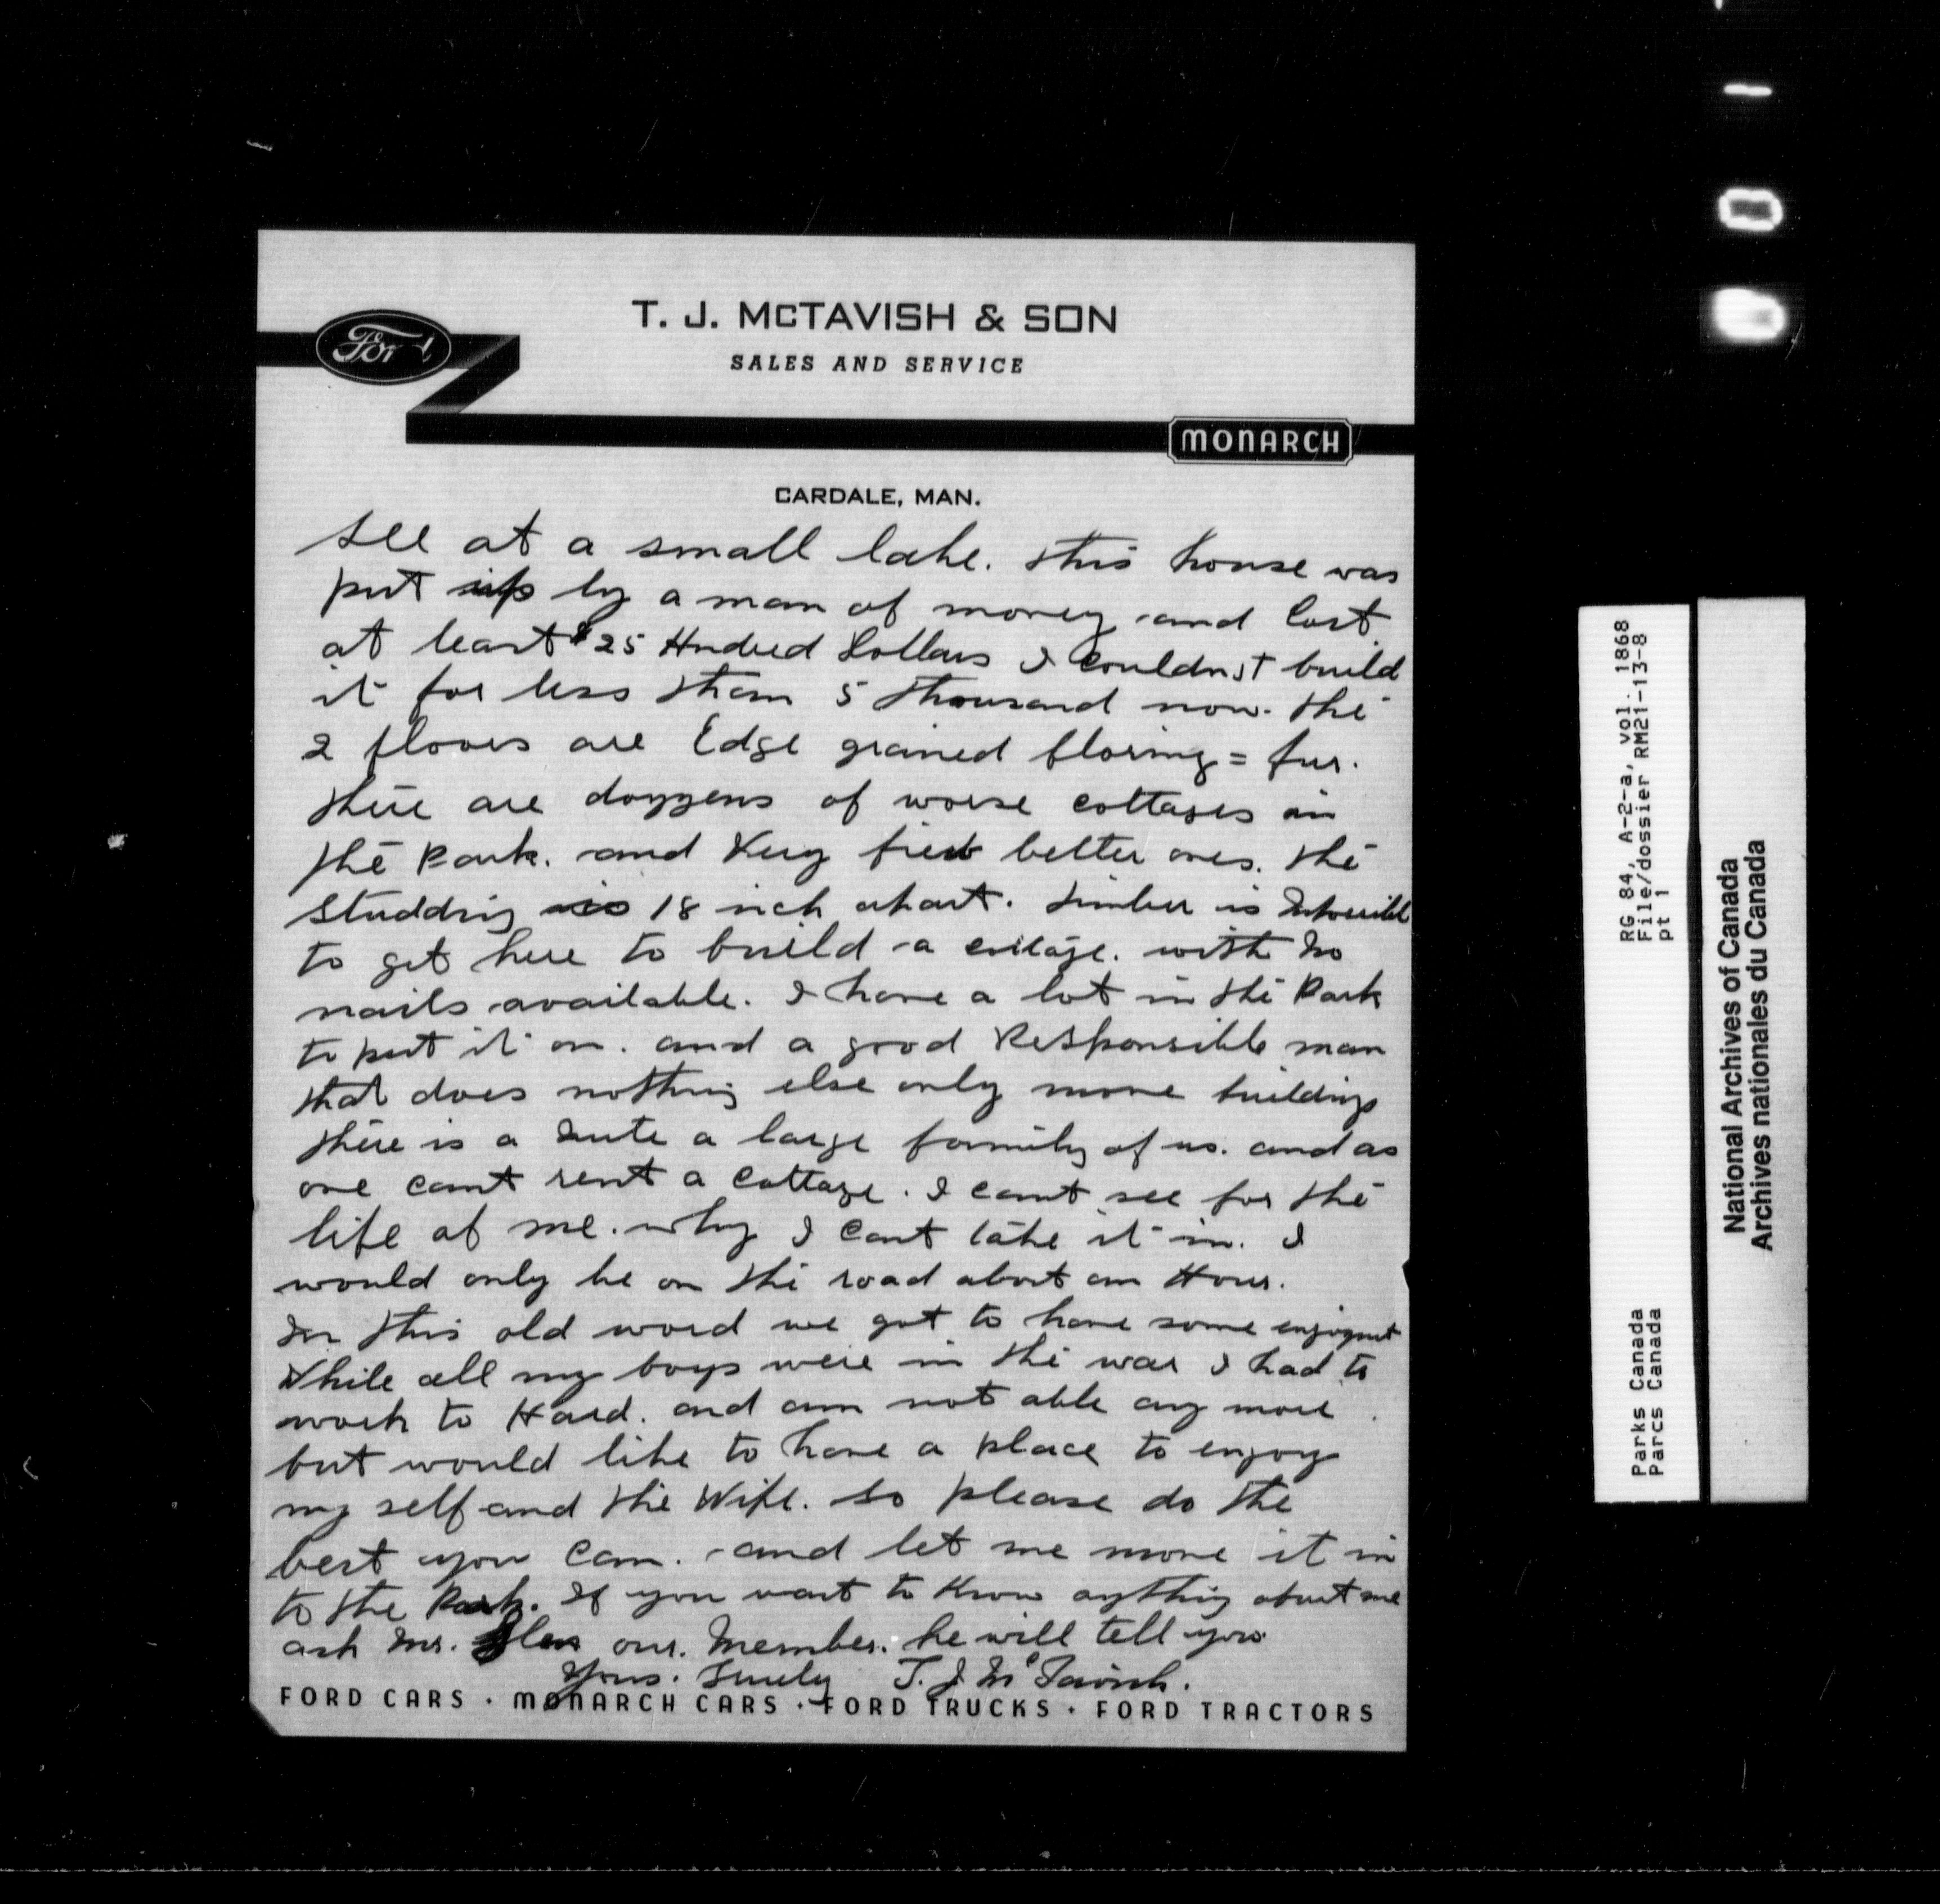 T. J. McTAVISH & SON
SALES AND SERVICE
Ford
MONARCH
CARDALE, MAN.
see at a small lake. this house was
put up by a man of money and Cost
at least $25 Hndred Dollars I Couldnst build
it for less than 5 thousand now. the
2 floors are Edge grained floring = fur.
there are dozzens of worse cottages in
the Park. and Very few better ones. the
studding is 18 inch apart. Limber is Imposible
to get here to build a cottage. with no
nails available. I have a lot in the Park
to put it on. and a good Responsible man
that does nothing else only move buildings
there is a quite a large family of us. and as
one cant rent a Cottage. I cant see for the
life of me. why I Cant take it in. I
would only be on the road about an Hour.
In this old word we got to have some enjoyment
While all my boys were in the war I had to
work to Hard. and am not able any more
but would like to have a place to enjoy
my self and the Wife. so please do the
best you Can. and let me move it in
to the Park. If you want to Know anything about me
ask Mr. our. Member. he will tell you
Yours. Truely T. J. McTavish.
FORD CARS · MONARCH CARS · FORD TRUCKS · FORD TRACTORS
RG 84, A-2-a, vol. 1868
File/dossier RM21-13-8
pt 1
Parks Canada
Parcs Canada
National Archives of Canada
Archives nationales du Canada